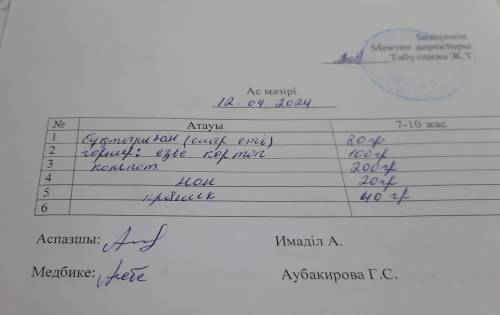 Бекітемін
Мектеп директоры
Табулдина Ж.Т.
Ас мәзірі
12.04 2024
№ Атауы 7-10 жас
1 (сиыр еті) 80гр
2 гарнир: езбе картоп 100гр
3 компот 200гр
4 нан 20гр
5 пряник 40 гр
6
Аспазшы: Имаділ А.
Медбике: Аубакирова Г.С.